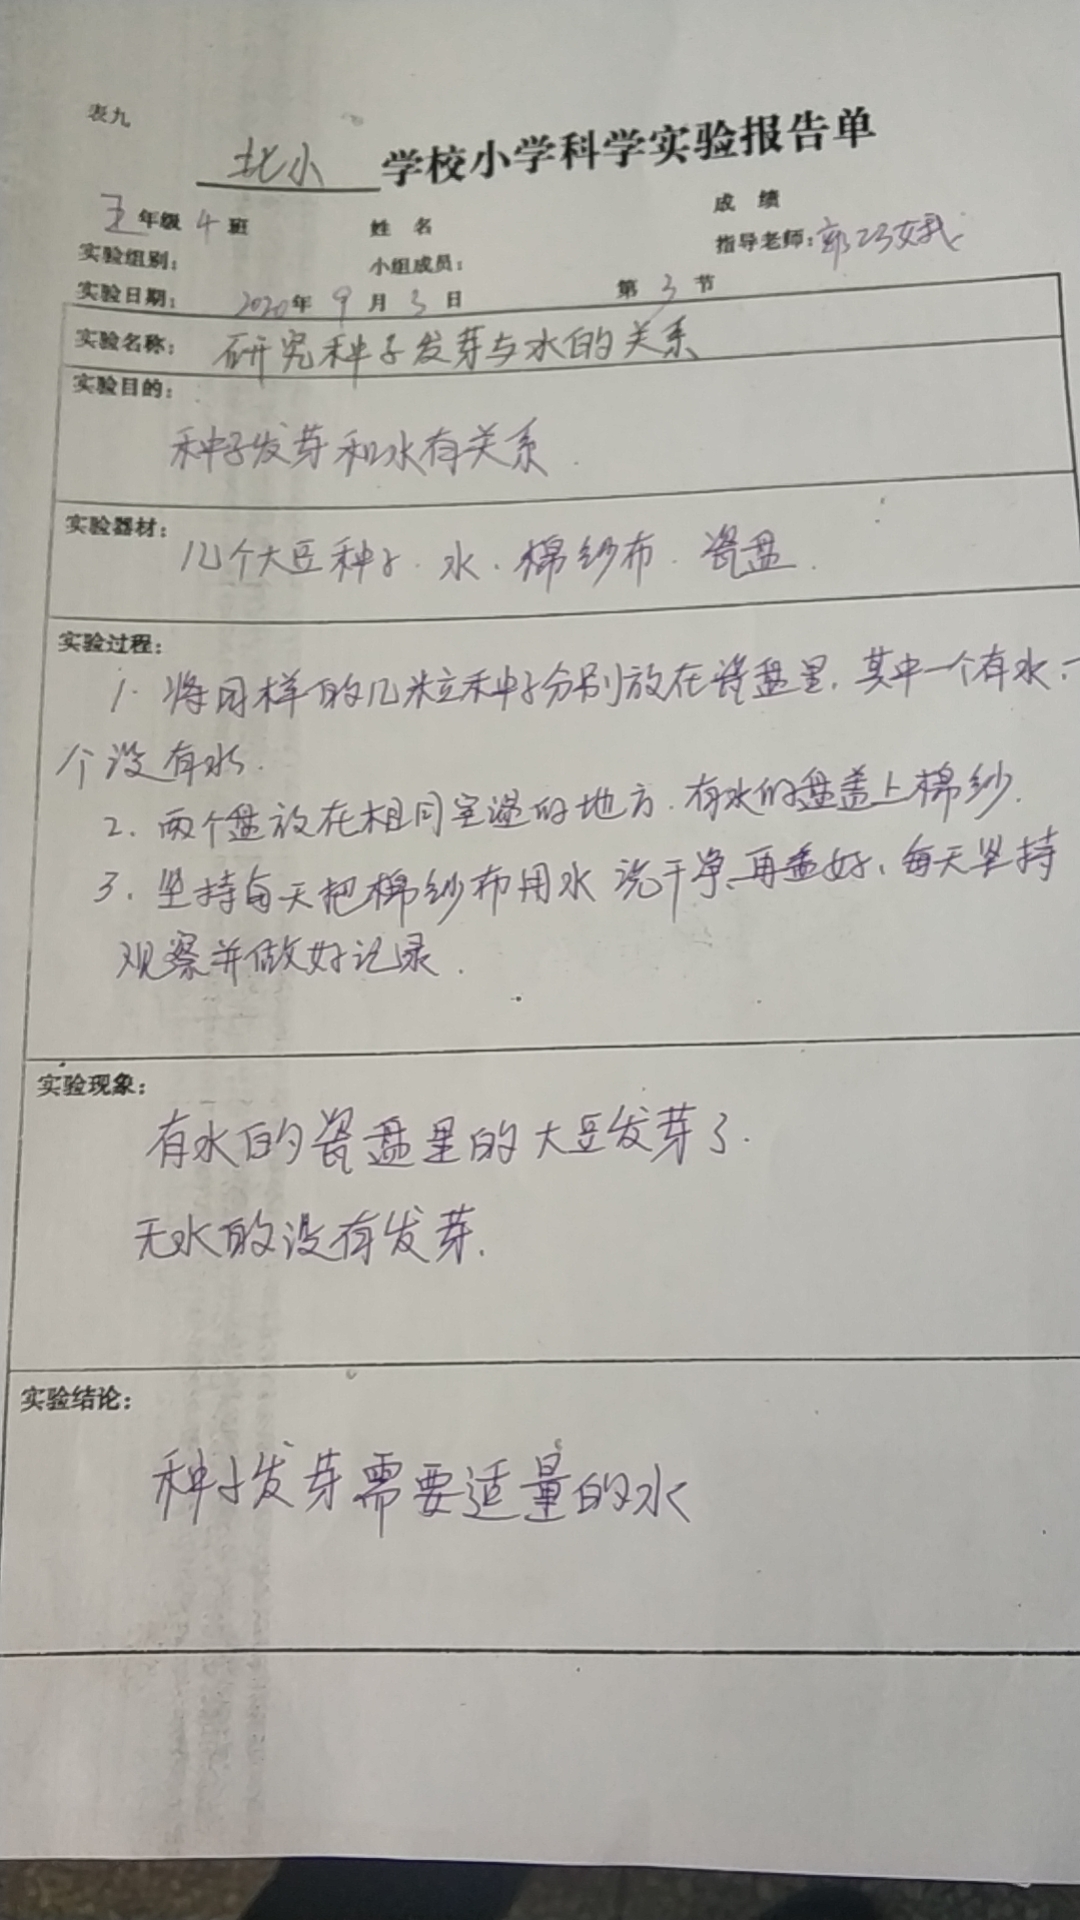 表九
北小 学校小学科学实验报告单
成 绩
五年级 4 班 姓 名
指导老师:郭巧娥
实验组别: 小组成员:
实验日期: 2020年 9 月 3 日 第 3 节
实验名称: 研究种子发芽与水的关系
实验目的:
种子发芽和水有关系.
实验器材:
几个大豆种子.水、棉纱布.瓷盘.
实验过程:
1.将同样的几粒种子分别放在瓷盘里,其中一个有水,一
个没有水.
2.两个盘放在相同室温的地方.有水的盘盖上棉纱.
3.坚持每天把棉纱布用水洗干净、再盖好、每天坚持
观察并做好记录.
实验现象:
有水的瓷盘里的大豆发芽了.
无水的没有发芽.
实验结论:
种子发芽需要适量的水